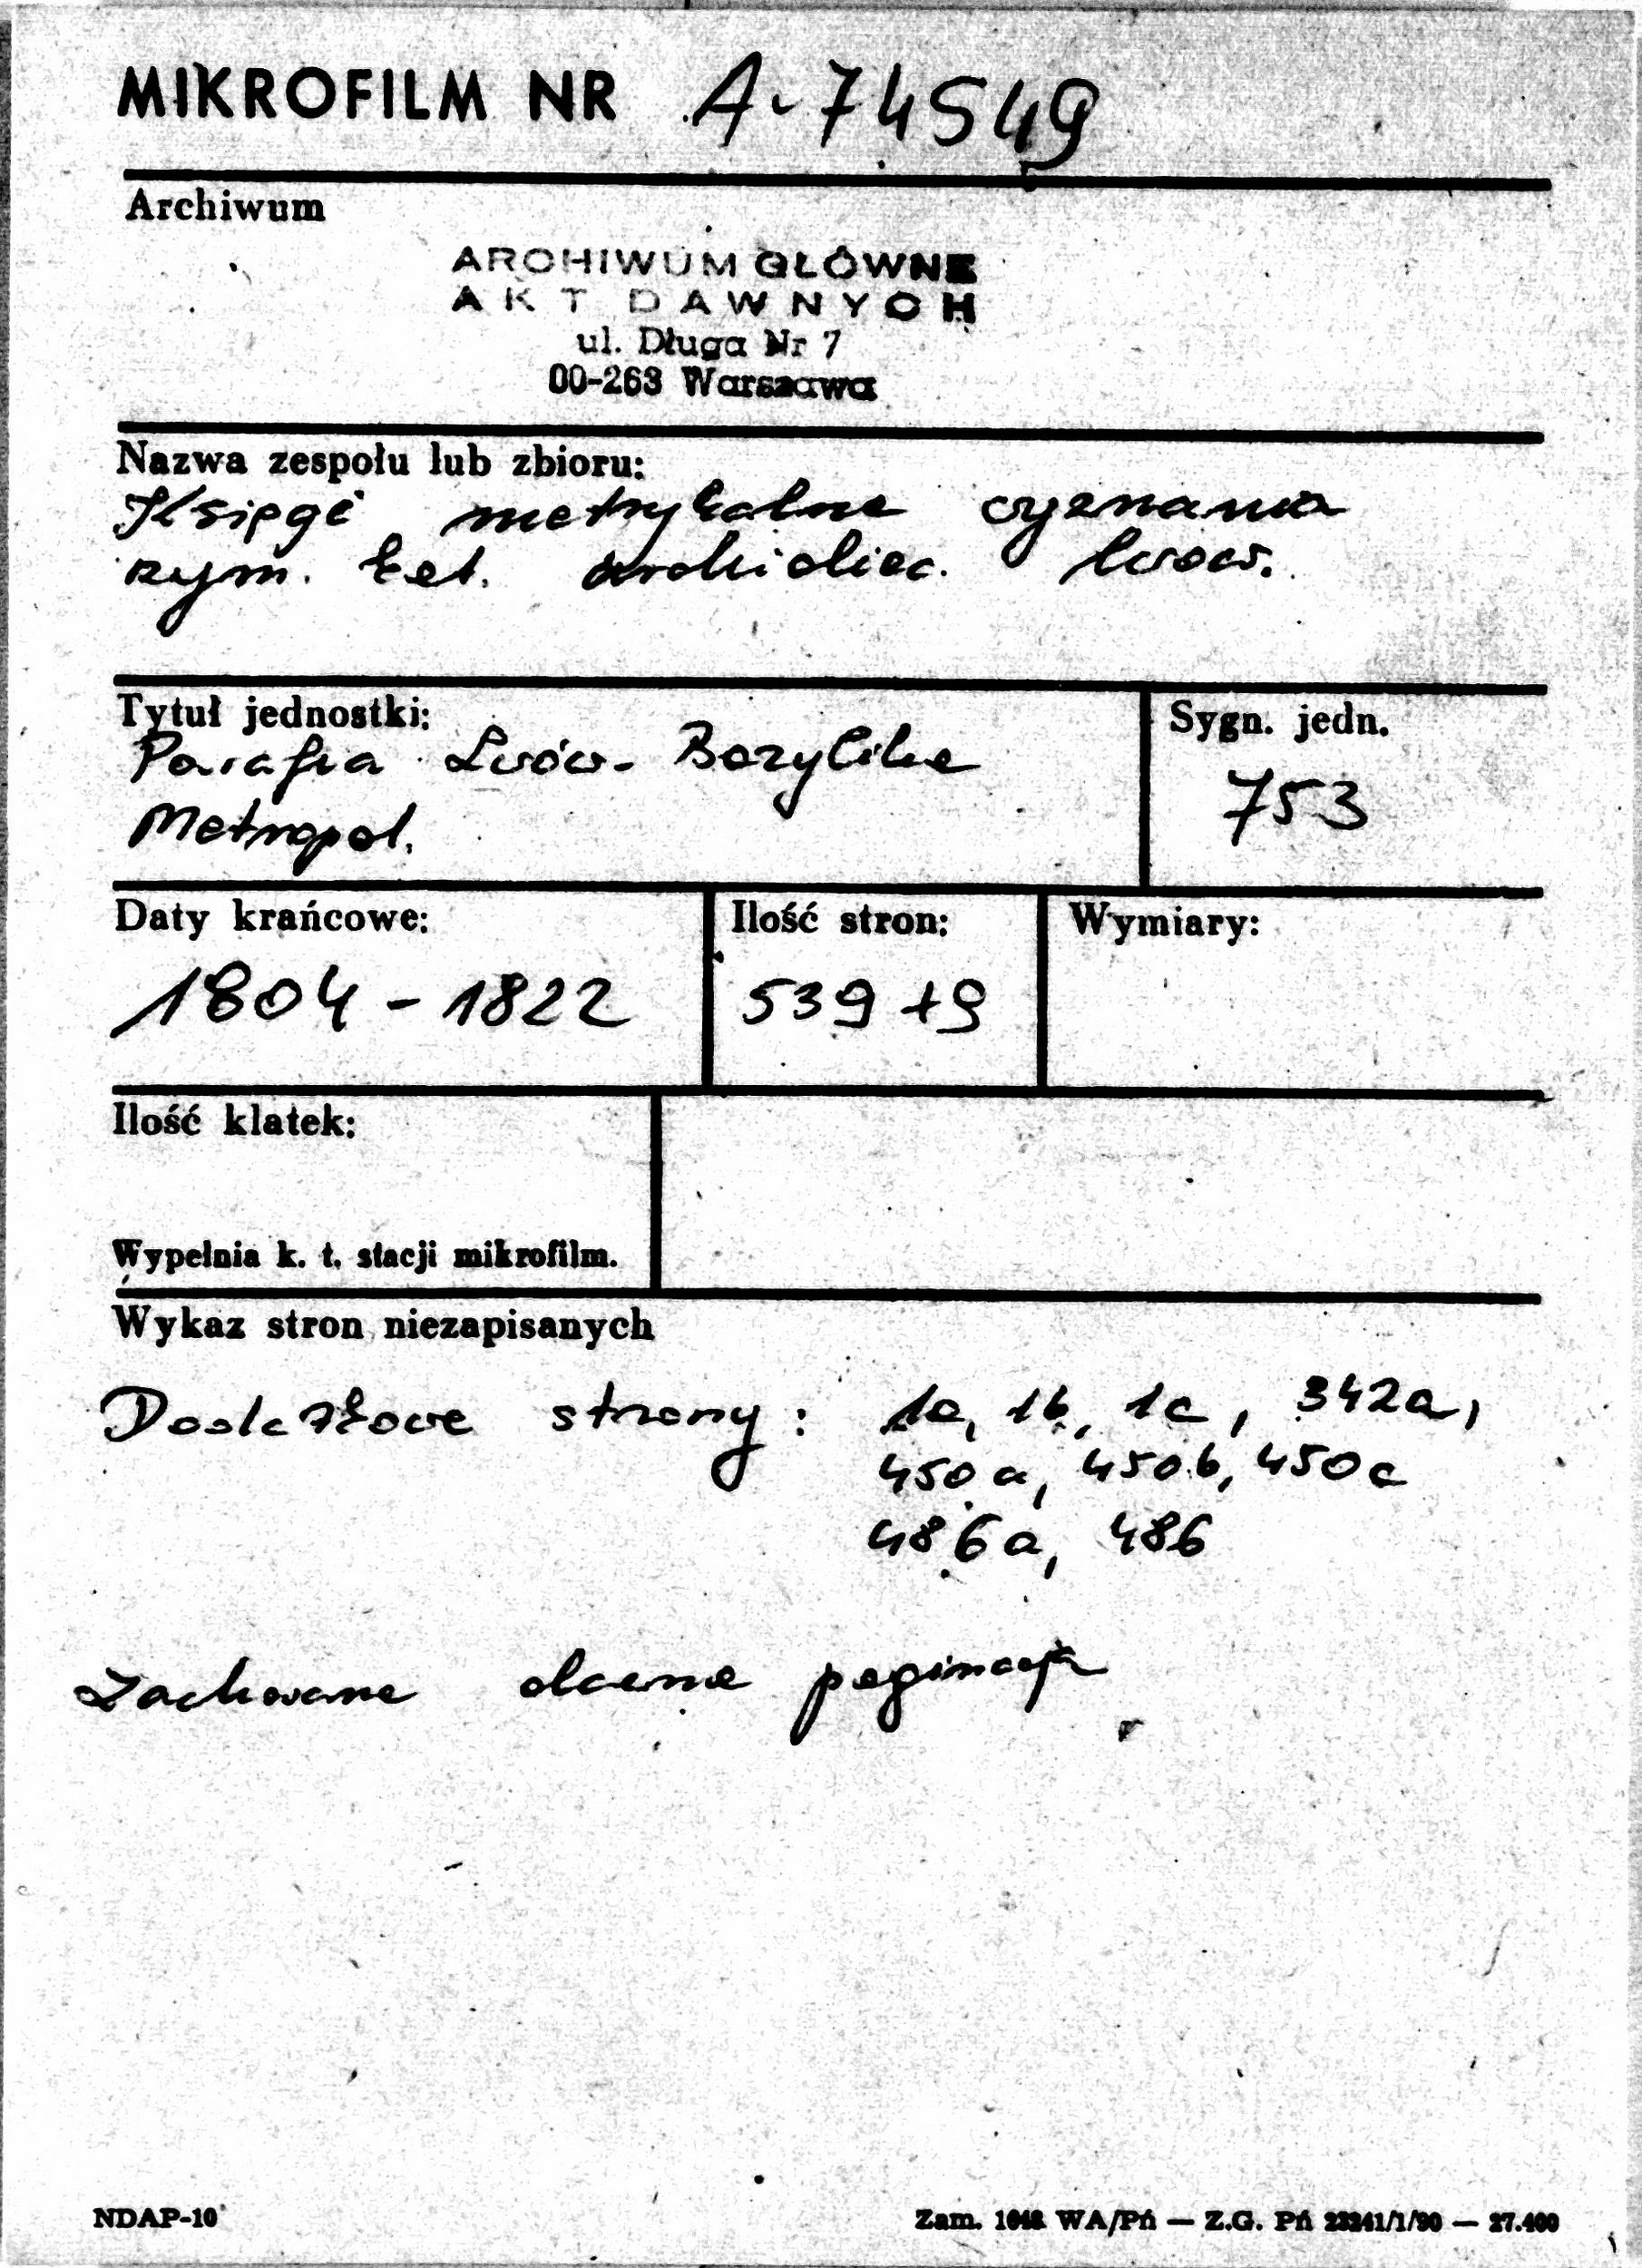 MIKROFILM NR A-74549
Archiwum
ARCHIWUM GŁÓWNE
AKT DAWNYCH
ul. Długa Nr 7
00-263 Warszawa
Nazwa zespołu lub zbioru:
Księgi metrykalne wyznania
rzym. kat. archidiec. lwow.
Tytuł jednostki:
Parafia Lwów - Bazylika
Metropol.
Sygn. jedn.
753
Daty krańcowe:
1804 - 1822
Ilość stron:
539 + 9
Wymiary:
Ilość klatek:
Wypełnia k. t. stacji mikrofilm.
Wykaz stron niezapisanych
Dodatkowe strony: 1a, 1b, 1c, 342a,
450a, 450b, 450c
486a, 486
Zachowane dawne paginacja
NDAP-10
Zam. 1048 WA/Pń — Z.G. Pń 23241/1/90 — 27.400